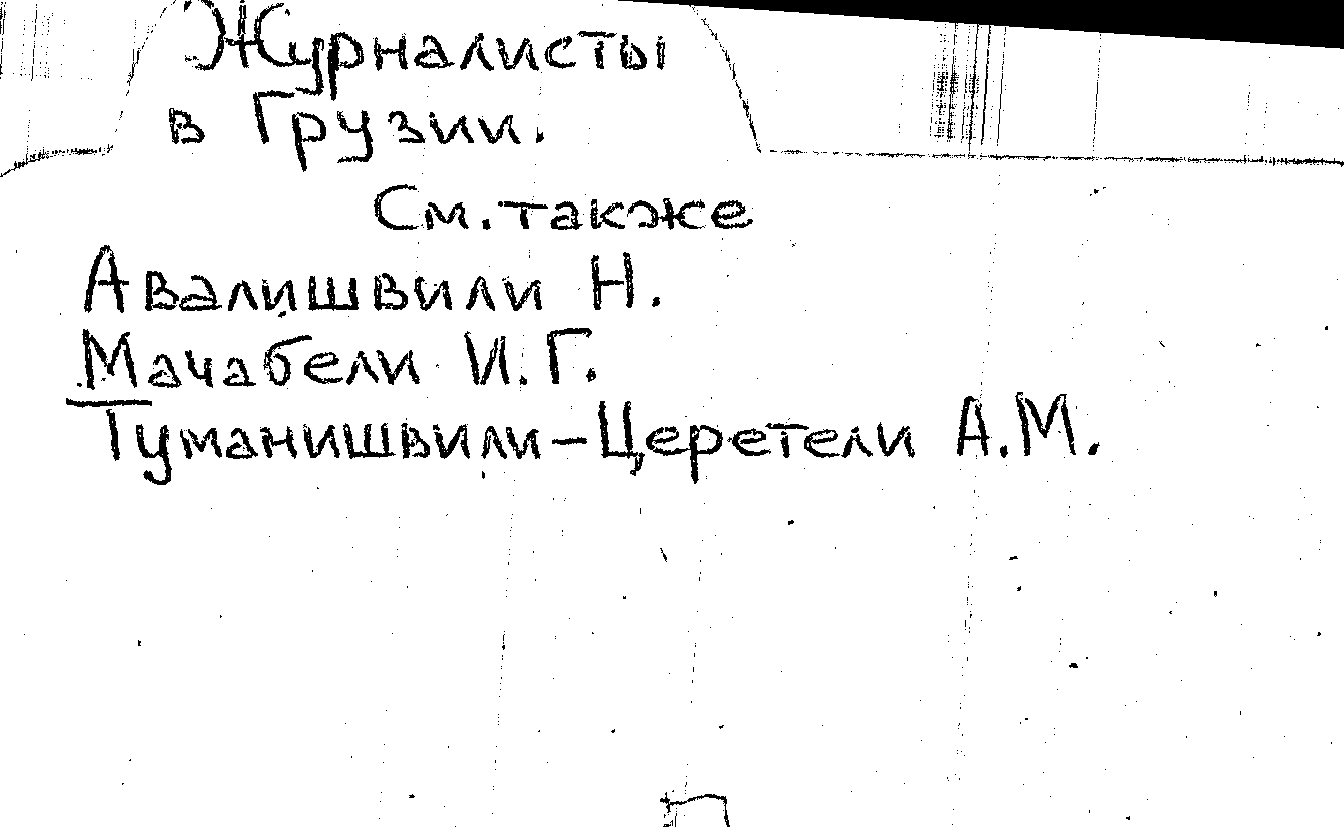 Журналисты
в Грузии.
См. также
Авалишвили Н.
Мачабели И.Г.
Туманишвили-Церетели А.М.